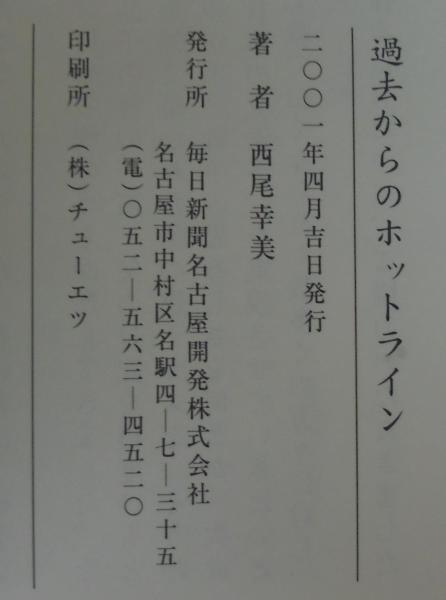 過去からのホットライン
二〇〇一年四月吉日発行
著 者 西尾幸美
発行所 毎日新聞名古屋開発株式会社
名古屋市中村区名駅四―七―三十五
(電)〇五二―五六三―四五二〇
印刷所 (株)チューエツ